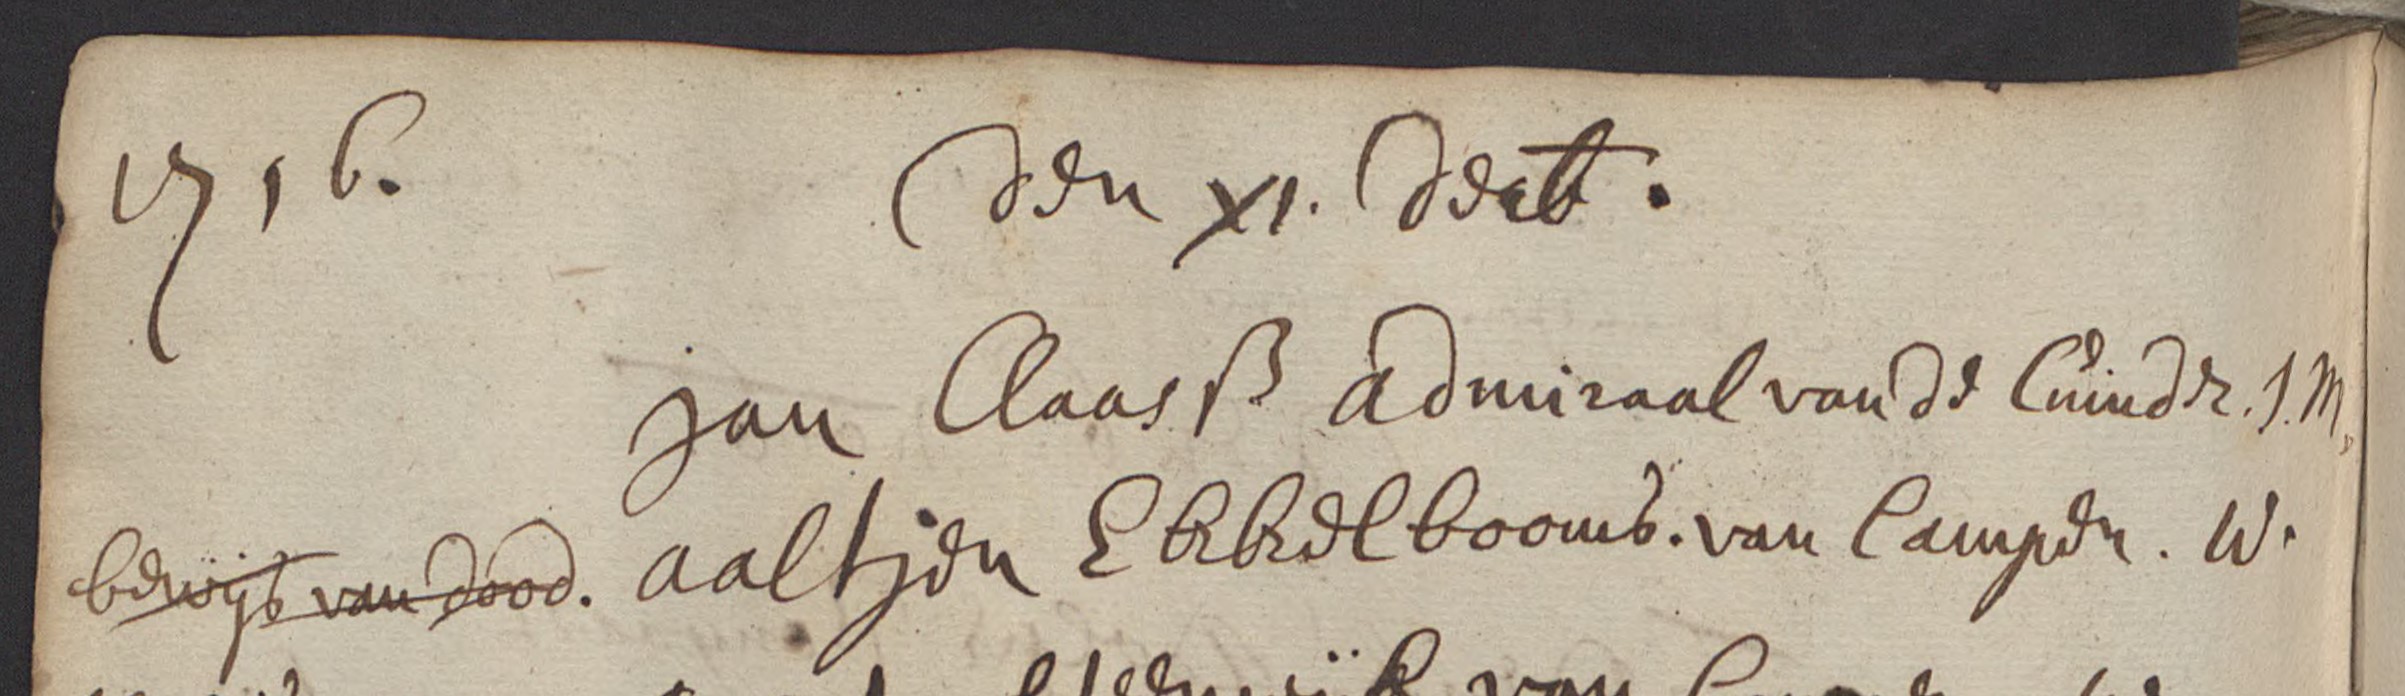 1716. den XI. Dect.
jan Claasß admiraal van de Cuinder. J.M.
bewijs van dood. aaltjen Ekkelbooms. van Campen. W.
van